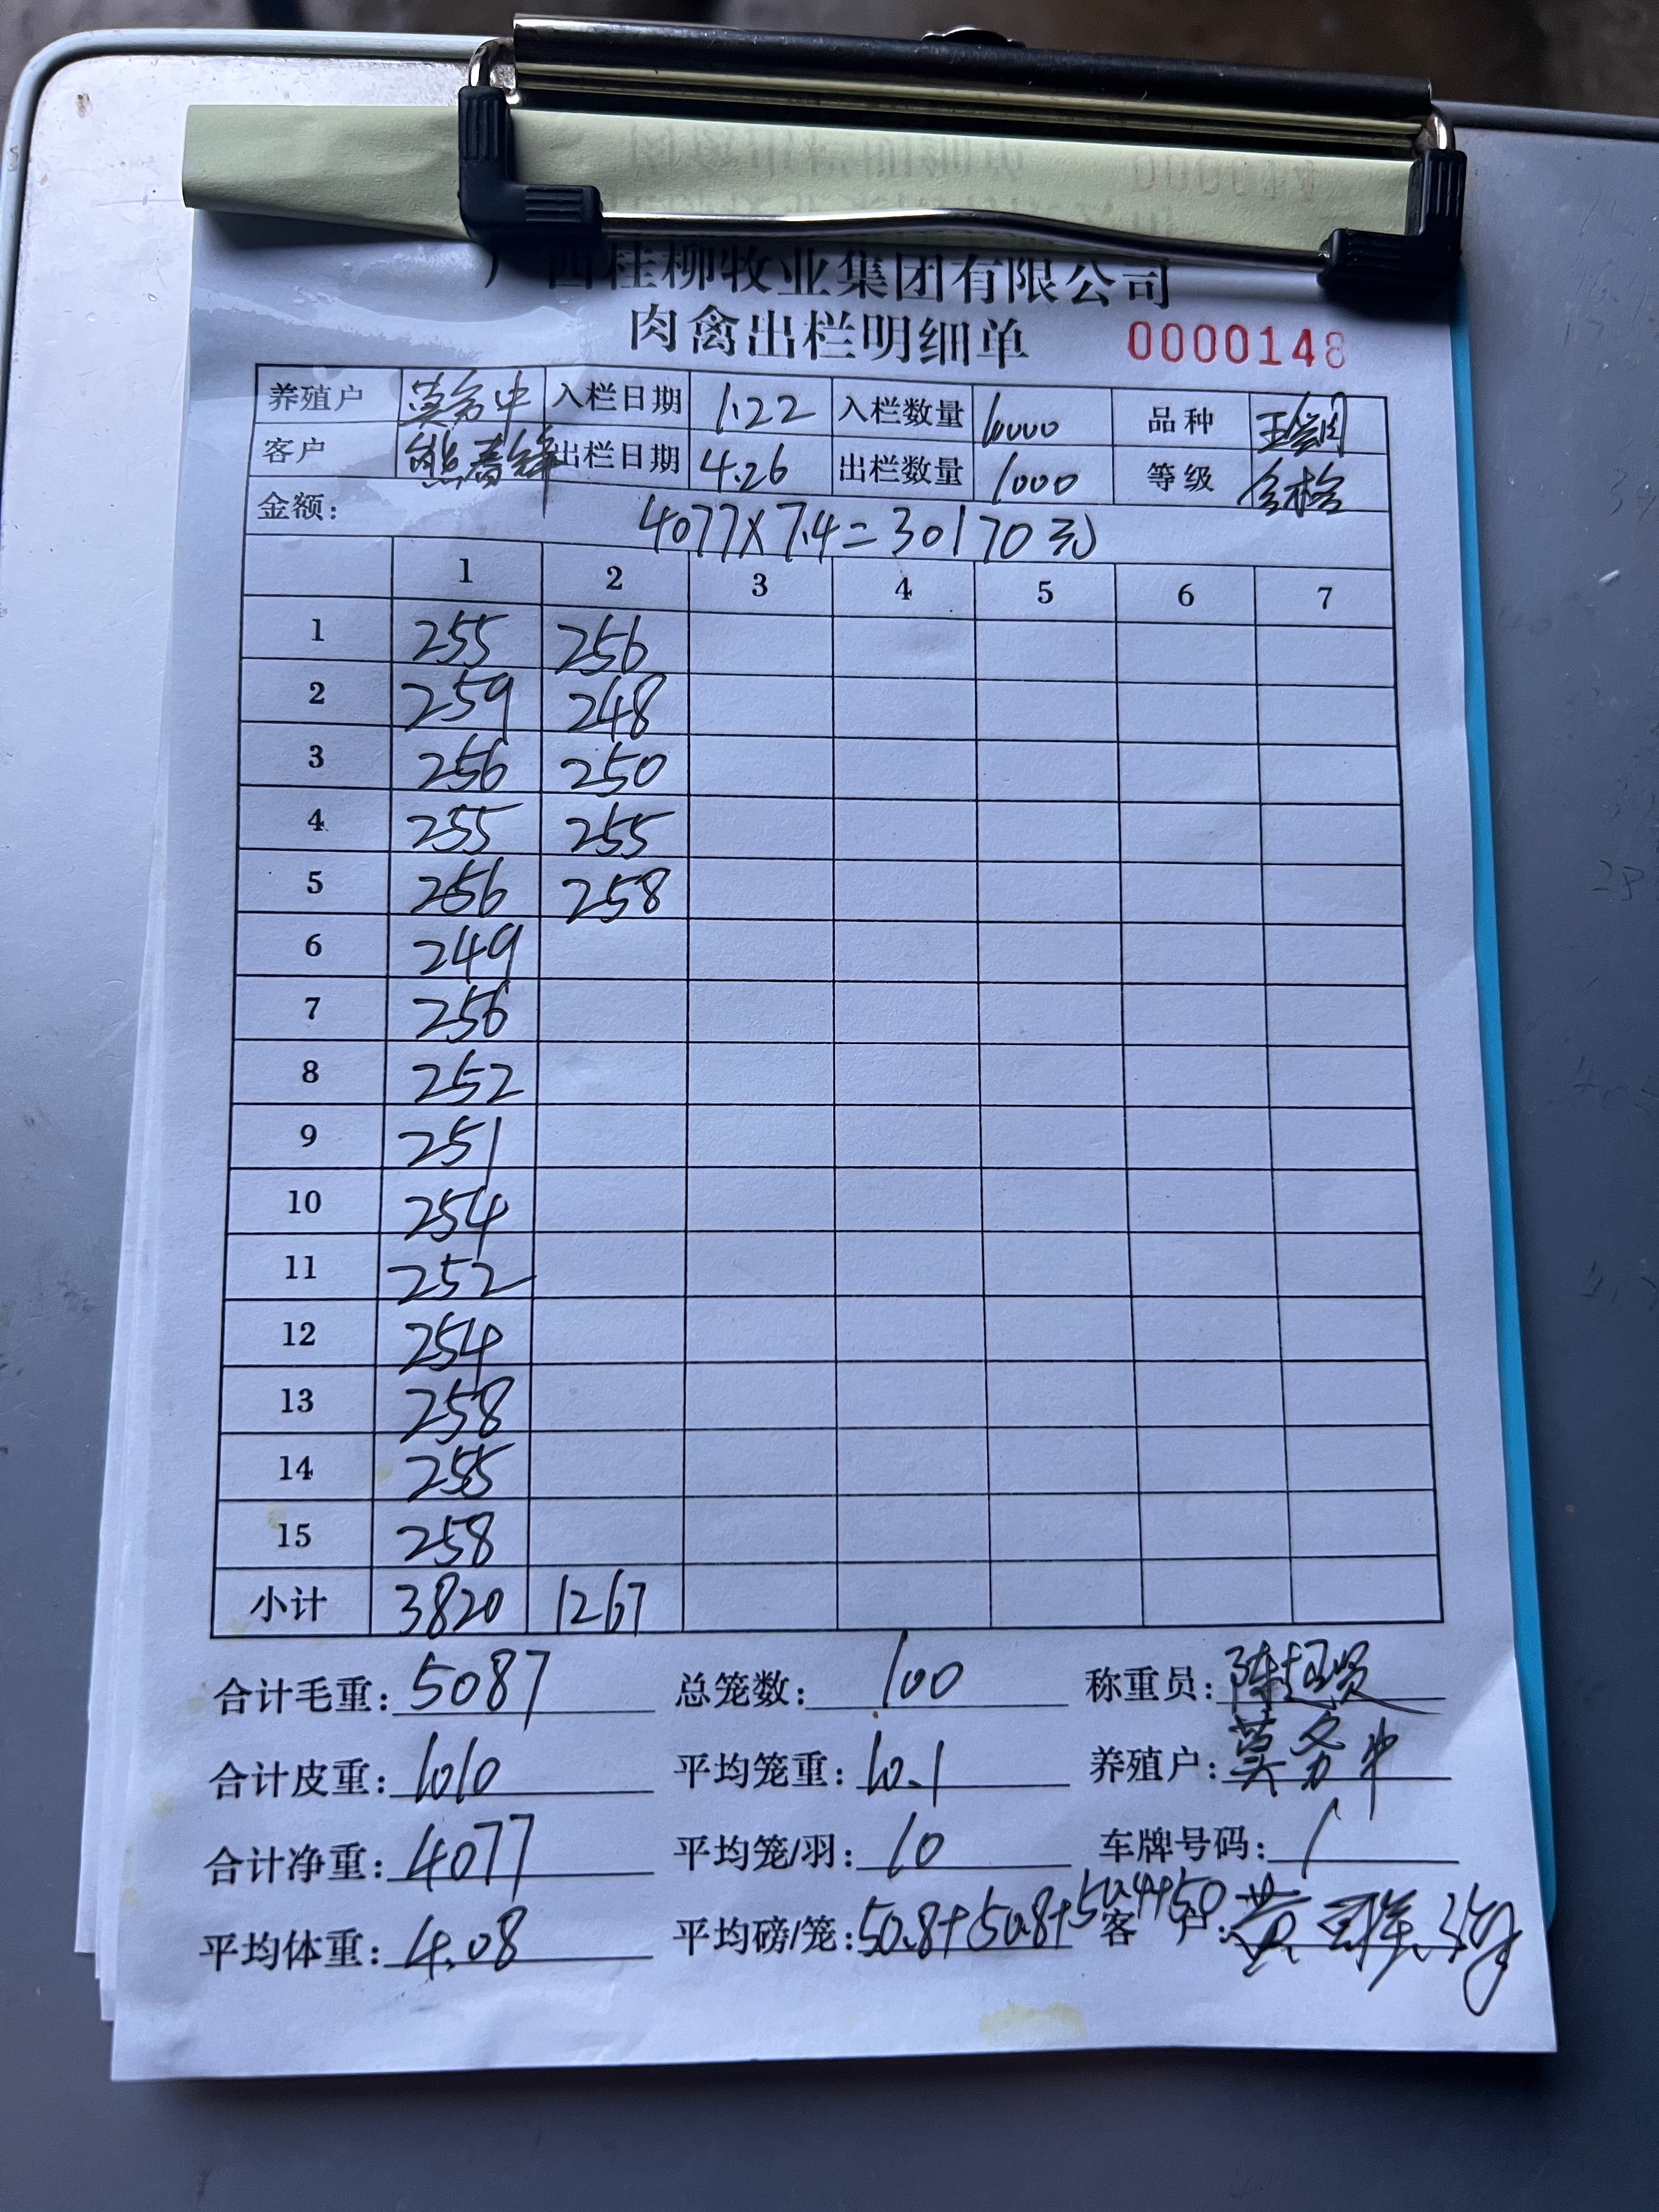 广西桂柳牧业集团有限公司
肉禽出栏明细单 0000148
养殖户 莫务中 入栏日期 1.22 入栏数量 6000 品种
客户 熊春锋 出栏日期 4.26 出栏数量 1000 等级 合格
金额: 4077×7.4=30170元
1 2 3 4 5 6 7
1 255 256
2 259 248
3 256 250
4 255 255
5 256 258
6 249
7 256
8 252
9 251
10 254
11 252
12 254
13 258
14 255
15 258
小计 3820 1267
合计毛重: 5087 总笼数: 100 称重员: 陈
合计皮重: 1010 平均笼重: 10.1 养殖户: 莫务中
合计净重: 4077 平均笼/羽: 10 车牌号码: /
平均体重: 4.08 平均磅/笼: 50.8+50.8+50.4+50 客户: 黄